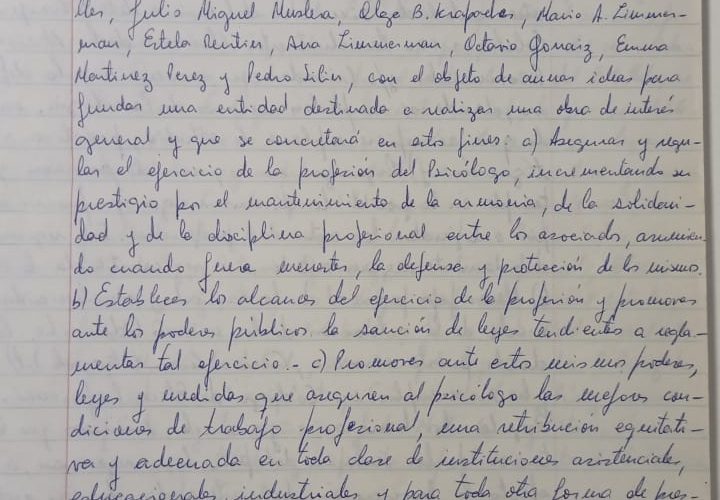 lles, Julio Miguel Muslera, Olga B. Krapoeles, Mario A. Zimmer-
man, Estela Rentin, Ana Zimmerman, Octavio Gonaiz, Emma
Martinez Perez y Pedro Silin, con el objeto de aunar ideas para
fundar una entidad destinada a realizar una obra de interés
general y que se concretará en estos fines: a) Asegurar y regu-
lar el ejercicio de la profesión del Psicólogo, incrementando su
prestigio por el mantenimiento de la armonía, de la solidari-
dad y de la disciplina profesional entre los asociados, asumien-
do cuando fuera menester, la defensa y protección de los mismos.
b) Establecer los alcances del ejercicio de la profesión y promover
ante los poderes públicos la sanción de leyes tendientes a regla-
mentar tal ejercicio.- c) Promover ante estos mismos poderes,
leyes y medidas que aseguren al psicólogo las mejores con-
diciones de trabajo profesional, una retribución equitati-
va y adecuada en toda clase de instituciones asistenciales,
educacionales, industriales y para toda otra forma de pres-